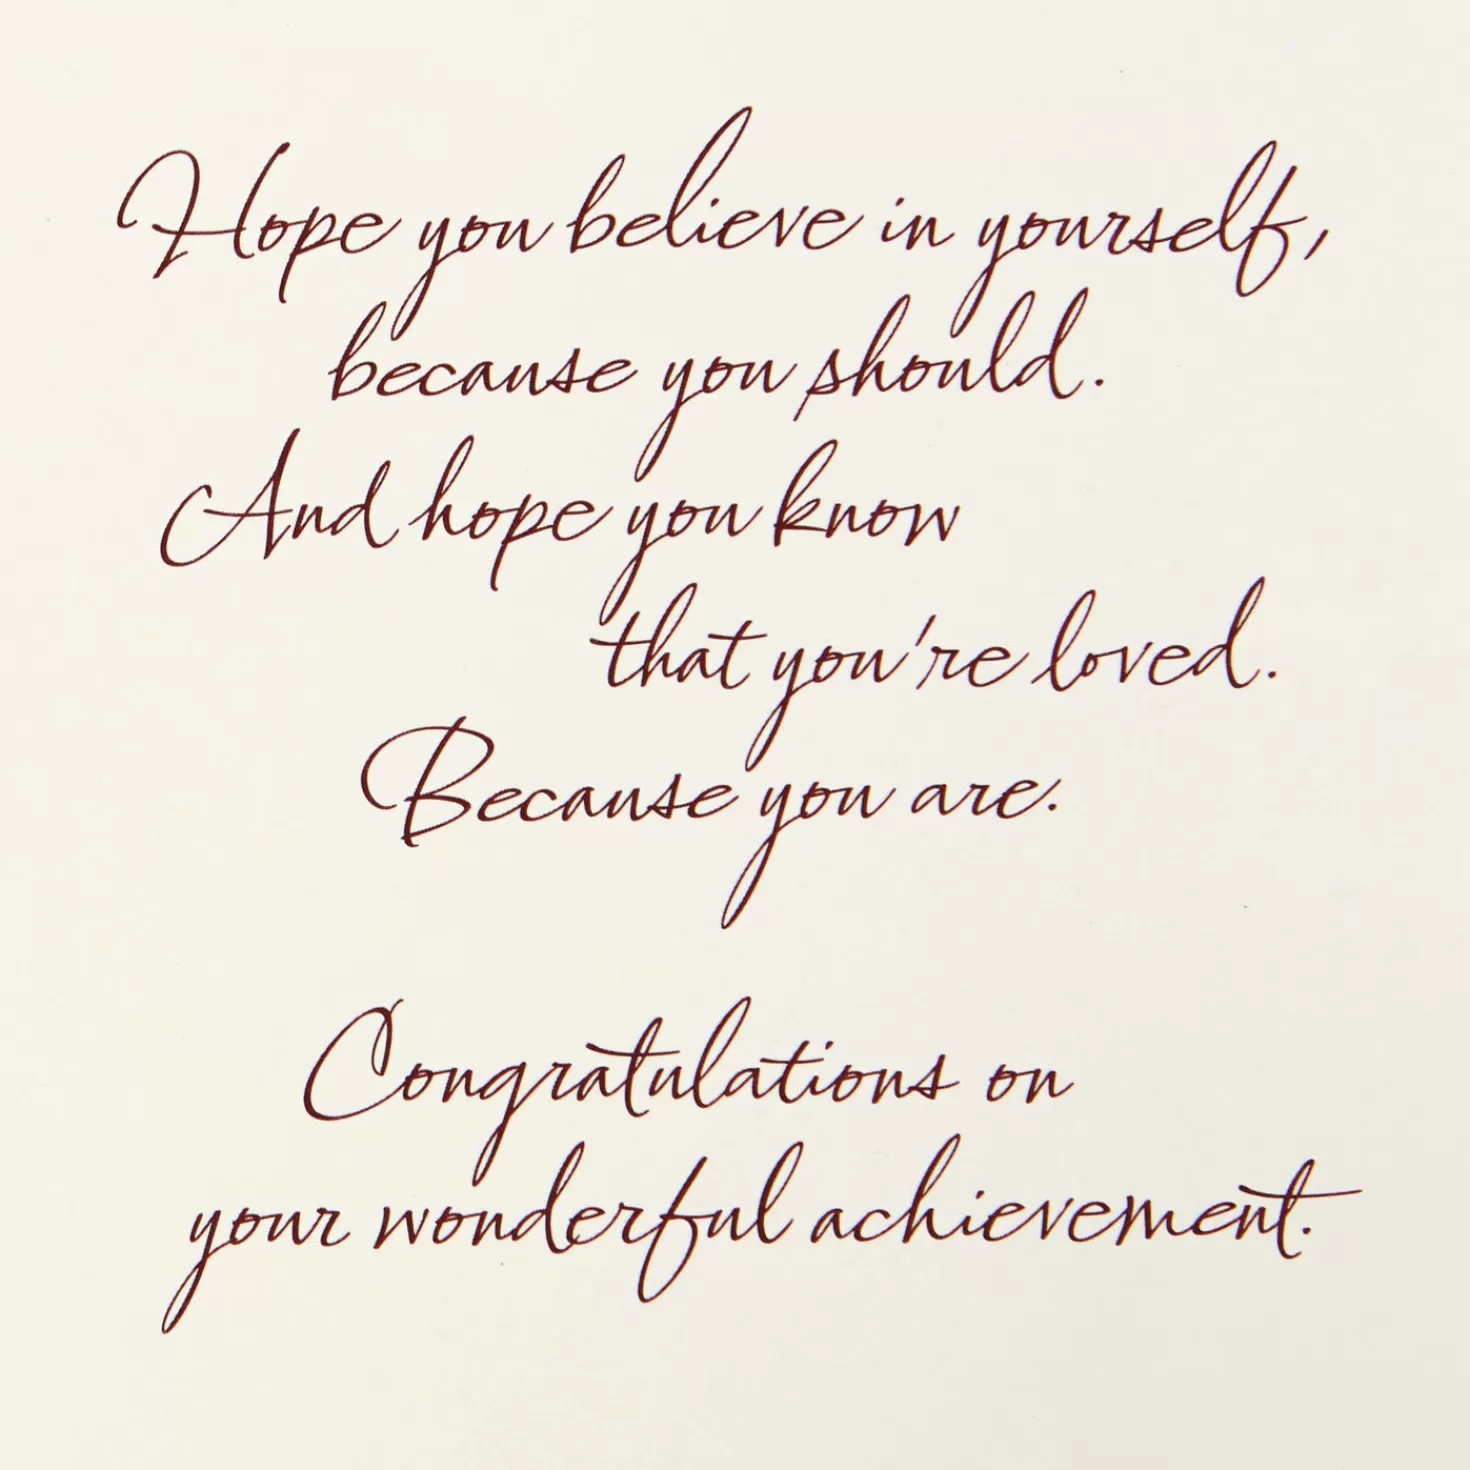 Hope you believe in yourself,
because you should.
And hope you know
that you're loved.
Because you are.
Congratulations on
your wonderful achievement.